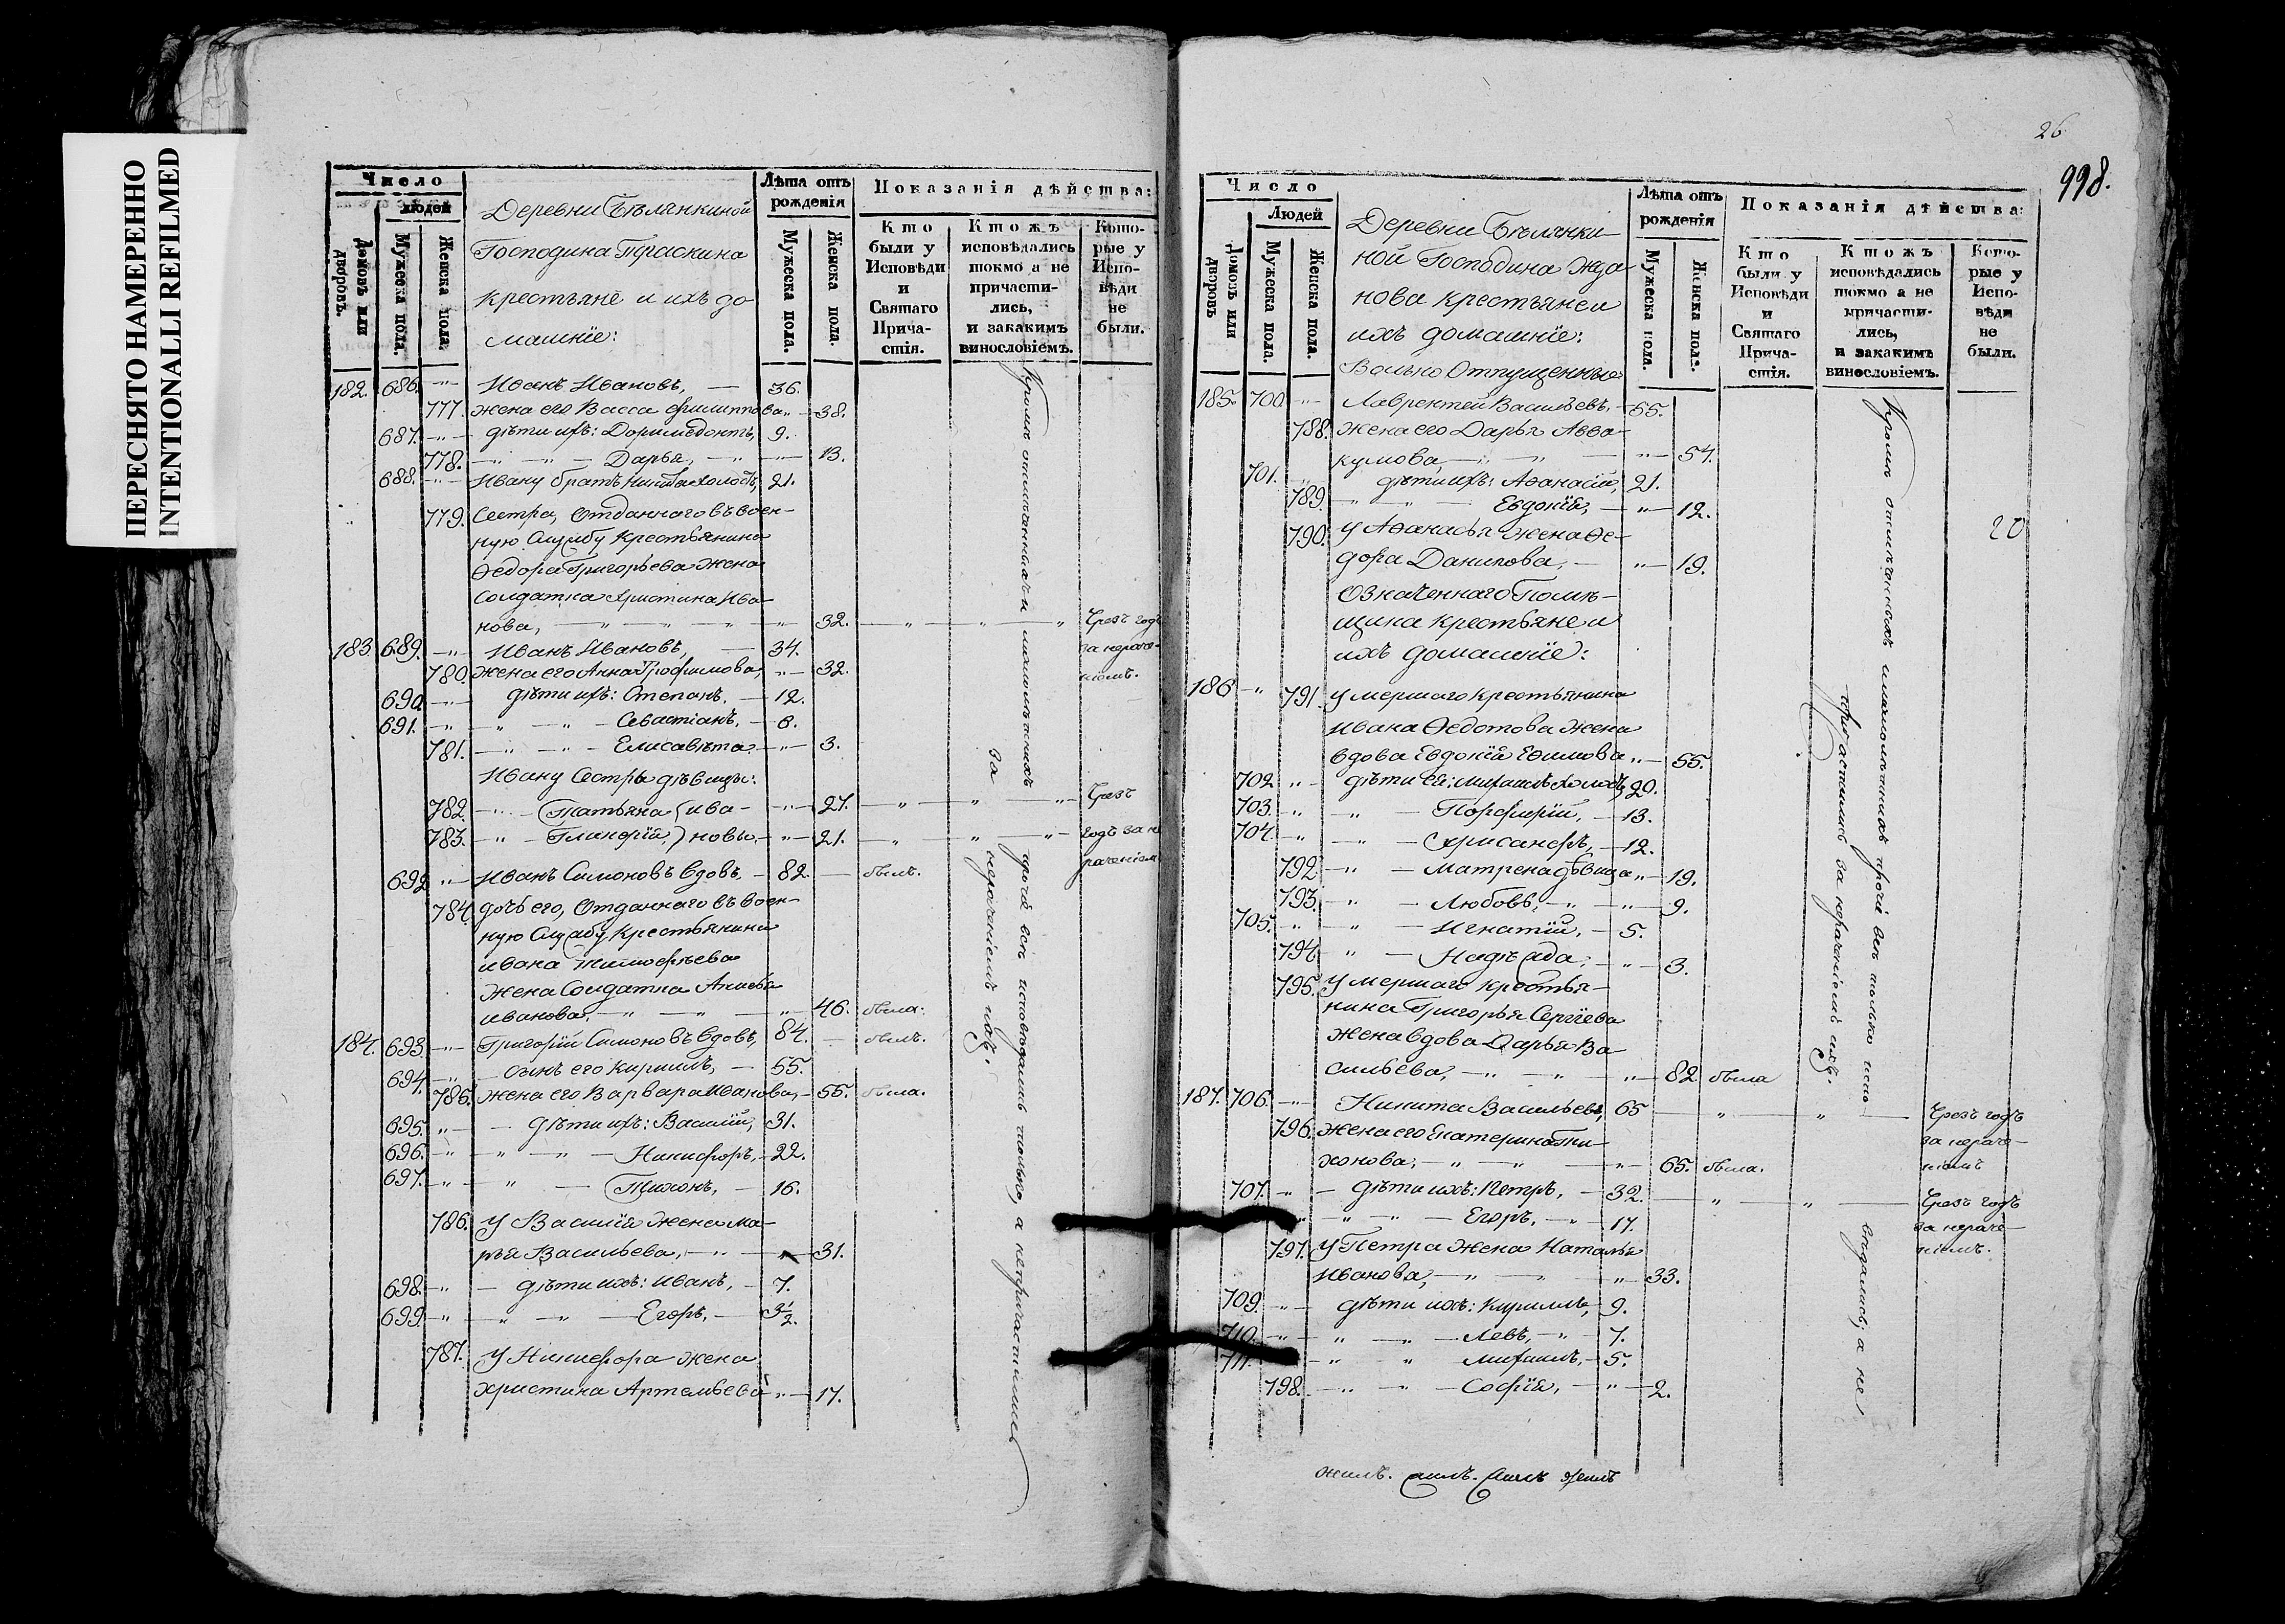 ПЕРЕСНЯТО НАМЕРЕННО
INTENTIONALLI REFILMED
Число
людей
Домовъ или дворовъ.
Мужеска пола.
Женска пола.
Деревни Бѣлянкиной
Господина Траскина
крестьяне и ихъ до
машніе:
Лѣта отъ рожденія
Мужеска пола.
Женска пола.
Показанія дѣйства:
Кто были у Исповѣди и Святаго Причастія.
Ктожъ исповѣдались токмо а не причастились, и закакимъ винословіемъ.
Которые у Исповѣди не были.
182. 686. Иванъ Ивановъ, 36.
777. жена его Васса Филиппова 38.
687. дѣти ихъ: Доримедонтъ, 9.
778. Дарья, 13.
688. Ивану братъ Никита холостъ, 21.
779. Сестра, Отданнаго въ воен-
ную Службу крестьянина
Ѳедора Григорьева жена
Солдатка Христина Ива-
нова, 32. Чрезъ годъ
за нераче-
ніемъ.
183 689. Иванъ Ивановъ, 34.
780. жена его Анна Трофимова, 32.
690. дѣти ихъ: Степанъ, 12.
691. Севастіанъ, 6.
781. Елисавѣта, 3.
Ивану Сестры дѣвицы:
782. Татьяна Ива- 27. Чрезъ
783. Гликерія, новы, 21. годъ за не
раченіем
692 Иванъ Симоновъ вдовъ, 82. былъ.
784. дочь его, Отданнаго въ воен-
ную Службу крестьянина
Ивана Тимофѣева
жена Солдатка Акилина
Иванова, 46. была.
184. 693 Григорій Симоновъ вдовъ, 84. былъ.
694. сынъ его Кириллъ, 55.
786. жена его Варвара Иванова, 55. была.
695. дѣти ихъ: Василій, 31.
696. Никифоръ, 22.
697. Тихонъ, 16.
786. У Василія жена Ма-
рья Васильева, 31.
698. дѣти ихъ: Иванъ, 7.
699. Егоръ, 3½.
787. У Никифора жена
Христина Артемьева 17.
Кромѣ отмѣченныхъ и малолѣтнихъ прочіе всѣ исповѣдались только, а непричастились
за нераченіемъ ихъ.
26
998.
Число
Людей
Домовъ или дворовъ
Мужеска пола.
Женска пола.
Деревни Бѣлянки-
ной Господина Жда-
нова крестьяне и
ихъ домашніе:
Вольно Отпущенные
Лѣта отъ рожденія
Мужеска пола.
Женска пола.
Показанія дѣйства:
Кто были у Исповѣди и Святаго Причастія.
Ктожъ исповѣдались токмо а не причастились, и закакимъ винословіемъ.
Которые у Исповѣди не были.
185. 700. Лаврентей Васильевъ, 55.
788. жена его Дарья Авва-
кумова, 54.
701. дѣти ихъ: Аѳанасій, 21.
789. Евдокія, 12.
790. У Аѳанасья жена Ѳе-
дора Данилова, 19.
20
Означеннаго Помѣ-
щика крестьяне и
ихъ домашніе:
186 791. Умершаго крестьянина
Ивана Ѳедотова жена
вдова Евдокія Ефимова 55.
702 дѣти ея: Михаилъ холостъ, 20.
703. Порфирій, 13.
704. Хрисанфъ, 12.
792 Матрена дѣвица 19.
793. Любовь, 9.
705. Игнатій, 5.
794 Надѣжда, 3.
795. Умершаго крестья-
нина Григорья Сергѣева
жена вдова Дарья Ва-
сильева, 82 была
187. 706. Никита Васильевъ, 65 Чрезъ годъ
за нераче-
ніемъ
796. жена его Екатерина Ти-
хонова, 65. была.
707. дѣти ихъ: Петръ, 32. Чрезъ годъ
за нераче-
ніемъ.
Егоръ, 17.
797. У Петра жена Наталья
Иванова, 33.
709. дѣти ихъ: Кириллъ, 9.
710. Левъ, 7.
711. Михаилъ, 5.
798. Софія, 2.
Кромѣ отмѣченныхъ и малолѣтнихъ прочіе всѣ только испо-
вѣдались, а не
причастились за нераченіемъ ихъ.